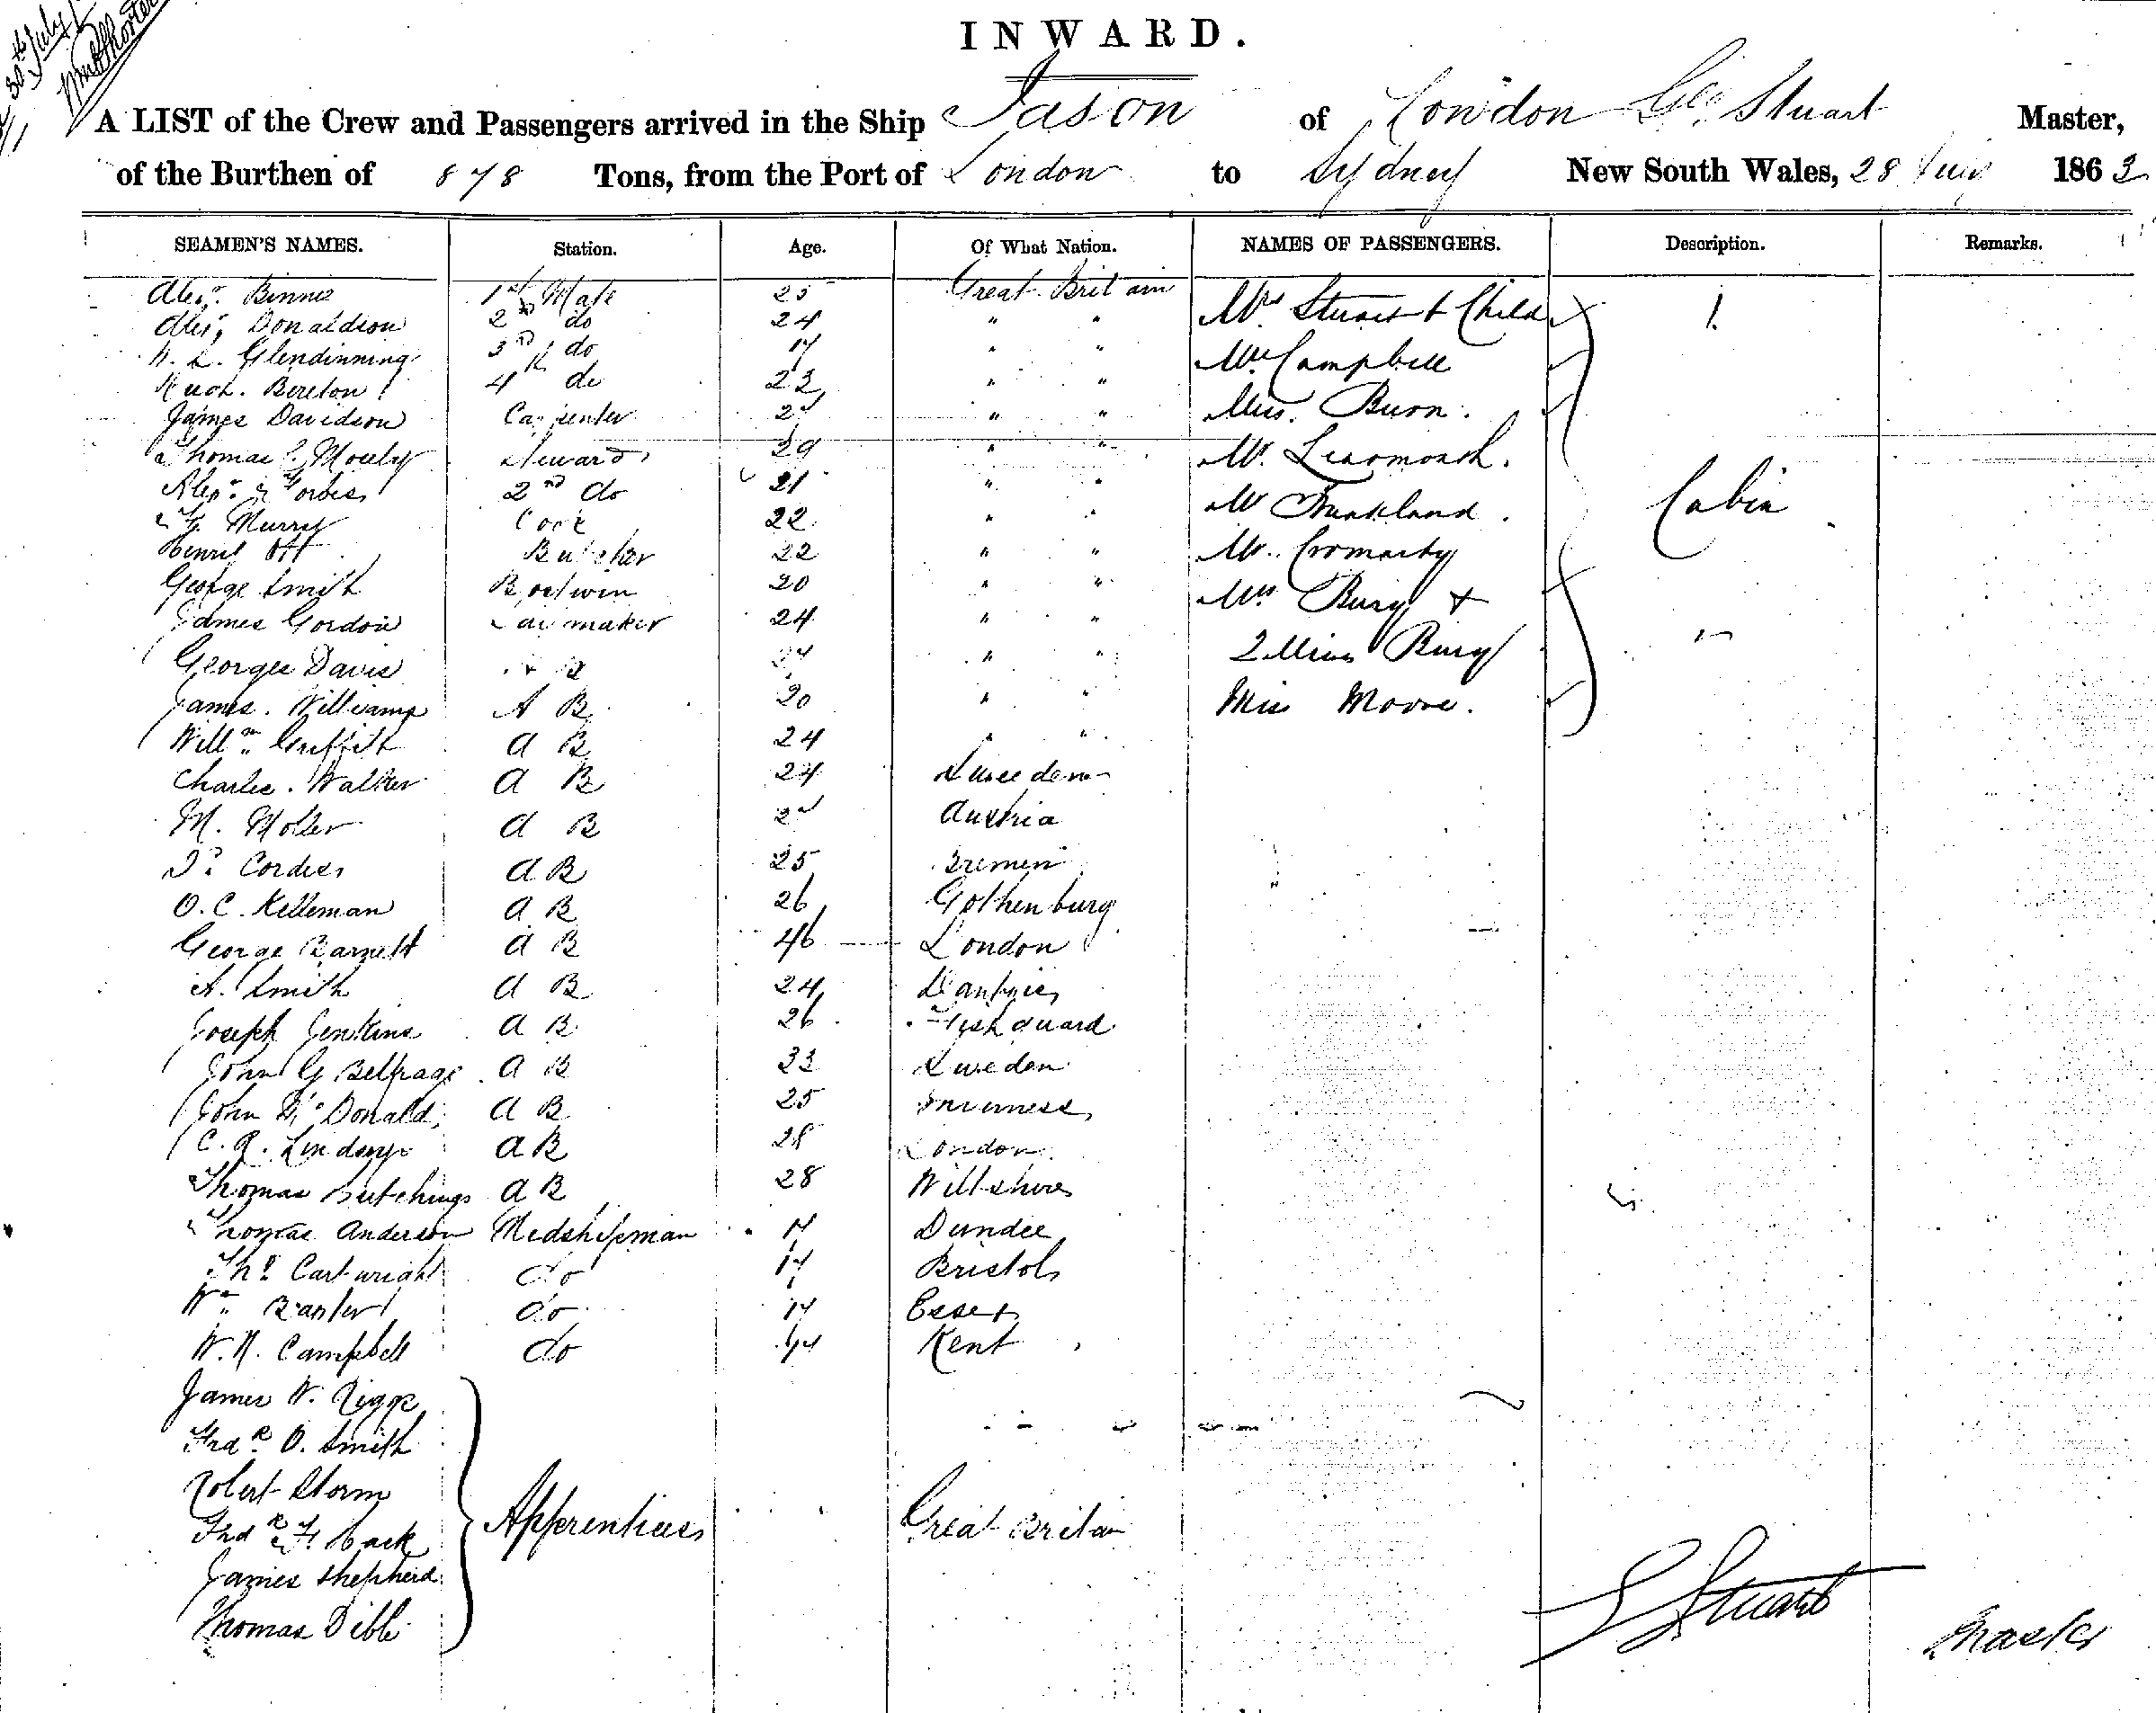 30th July
INWARD.
A LIST of the Crew and Passengers arrived in the Ship Jason of London Geo. Stuart Master,
of the Burthen of 878 Tons, from the Port of London to Sydney New South Wales, 28 1863
SEAMEN'S NAMES. Station. Age. Of What Nation. NAMES OF PASSENGERS. Description. Remarks.
Alexr. Binnie 1st Mate 25 Great Britain Mrs Stuart & Child 1
Alexr Donaldson 2nd do 24 " "
Glendinning 3rd do 17 " " Campbell
Hugh. Bereton 4th do 23 " "
James Davidson Carpenter " " Miss. Buon.
Thomas Mouly Steward 29 " " Mr. Learmonth.
Alexr. Forbes 2nd do 21 " " Mr Frankland.
G. Murry Cook 22 " " Cabin
Henry Ott Butcher 22 " " Mr. Cromarty
George Smith Boatswin 20 " " Mrs Bury &
James Gordon Sailmaker 24 " "
George Davis " " 2 Miss Bury
James. Williams A B 20 " " Miss Moore.
Willm. Griffith A B 24 " "
Charles. Walker A B 24 Sweeden
M. Moller A B Austria
Cordes A B 25 Bremen
O. C. Kelleman A B 26 Gothenburg
George Barnett A B 46 London
A. Smith A B 24 Dantzic
Joseph Jenkins A B 26 Fishguard
John G Belfrage A B 33 Sweden
John McDonald A B 25 Inverness
C. R. Lindsay A B 28 London
Thomas Hutchings A B 28 Willshire
Thomas Anderson Midshipman 17 Dundee
Thos Cartwright do 17 Bristol
Wm. Baxter do 17 Essex
W. R. Campbell do Kent
James W. Riggs
Fredk. O. Smith
Robert Storm
Fredk F. Apprentices Great Britain
James Shepherd
Thomas Dible
G Stuart Master